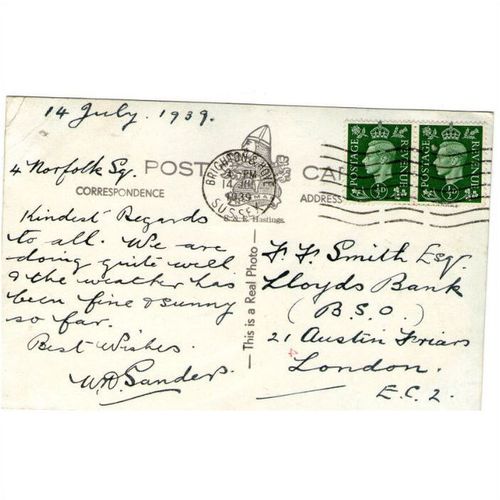 14 July. 1939.
4 Norfolk Sq.
POST CARD
CORRESPONDENCE
ADDRESS
BRIGHTON & HOVE
PM
14 JUL
1939
SUSSEX
POSTAGE REVENUE
½D
POSTAGE REVENUE
½D
S. & E. Hastings.
This is a Real Photo
Kindest Regards
to all. We are
doing quite well
& the weather has
been fine & sunny
so far.
Best Wishes.
Sanders.
F F Smith Esq.
Lloyds Bank
(B.S.O)
21 Austin Friars
London.
E.C.2.